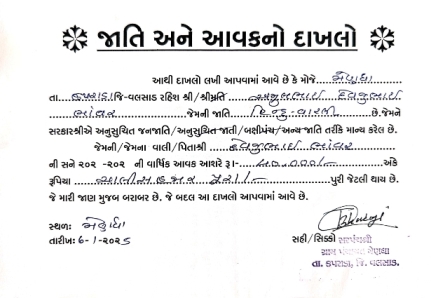 જાતિ અને આવકનો દાખલો
આથી દાખલો લખી આપવામાં આવે છે કે મોજે ...મેણધા
તા. કપરાડા જિ-વલસાડ રહિશ શ્રી/શ્રીમતિ દેવજીભાઈ
જેમની જાતિ હિન્દુ-વારલી છે.જેમને
સરકારશ્રીએ અનુસુચિત જનજાતિ/અનુસુચિત-જાતી/બક્ષીપંચ/અન્ય-જાતિ તરીકે માન્ય કરેલ છે.
જેમની/જેમના વાલી/પિતાશ્રી દેવજીભાઈ
ની સને ૨૦૨ -૨૦૨ ની વાર્ષિક આવક આશરે રૂા.- ૪૦,૦૦૦/- અંકે
રૂપિયા ચાલીસ હજાર પુરા/- પુરી જેટલી થાય છે.
જે મારી જાણ મુજબ બરાબર છે. જે બદલ આ દાખલો આપવામાં આવે છે.
સ્થળઃ મેણધા
તારીખઃ 6-1-૨૦૨૬
સહી/સિક્કો સરપંચશ્રી
ગ્રામ પંચાયત મેણધા
તા. કપરાડા, જિ. વલસાડ.